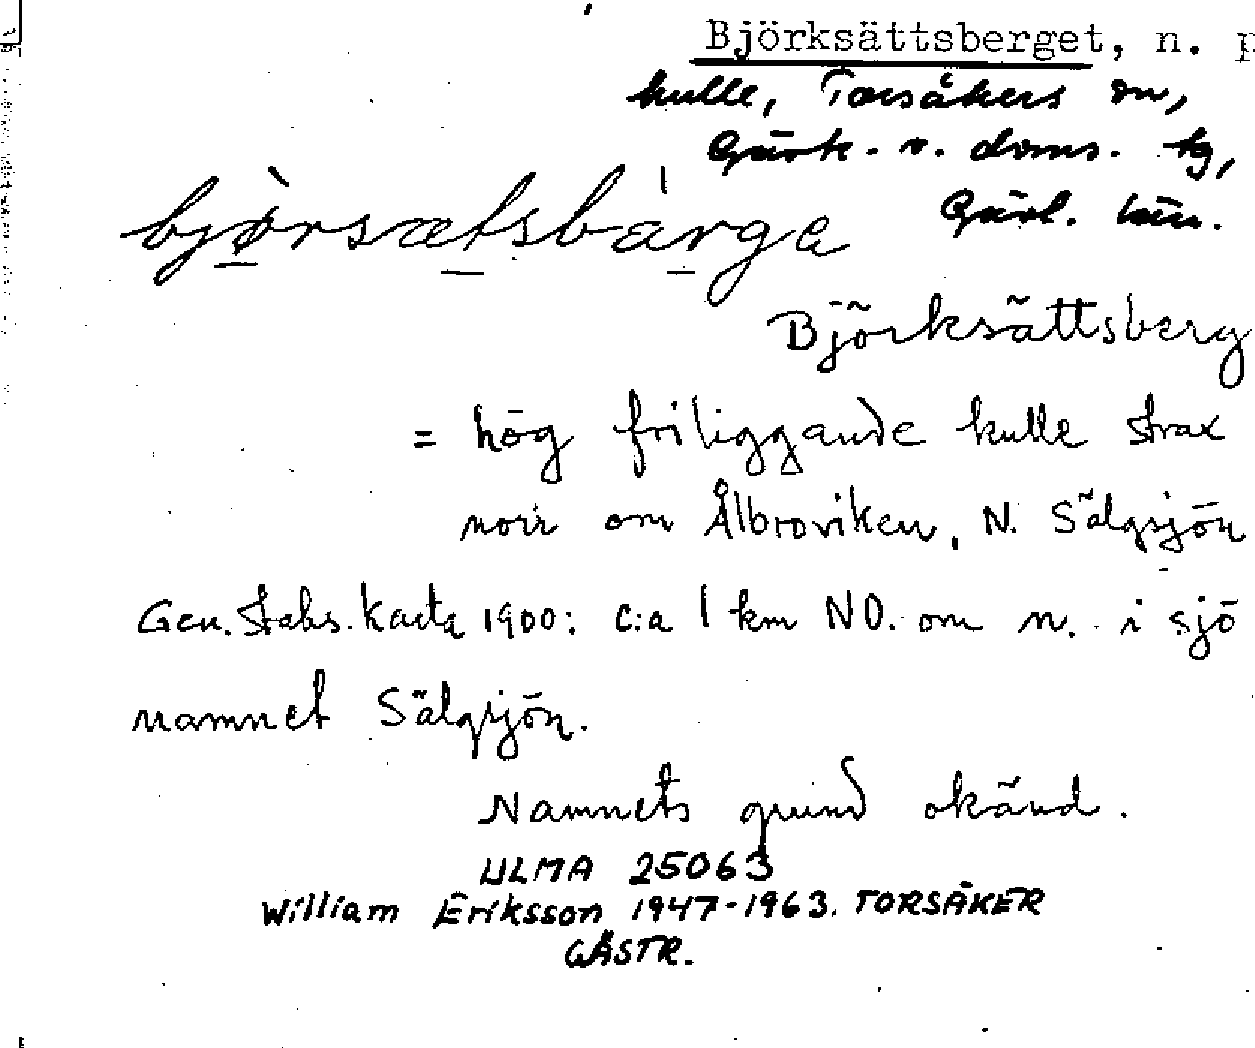 Björksättsberget, n. p
kulle, Torsåkers sn,
Gästr. v. doms. tg,
Gävl. län.
bjørsætsbärga
Björksättsberg
= hög friliggande kulle strax
norr om Ålbroviken, N. Sälgsjön
Gen. Stabs. Karta 1900: c:a 1 km NO. om n. i sjö
namnet Sälgsjön.
Namnets grund okänd.
ULMA 25063
William Eriksson 1947-1963. TORSÅKER
GÄSTR.